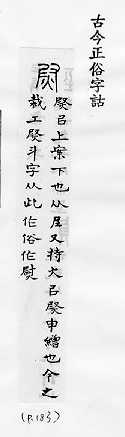 古今正俗字詁
㷉
㷉㠯上案下也从𡰥又持火㠯㷉申繒也今之
裁工㷉斗字从此作俗作熨
(P.183)